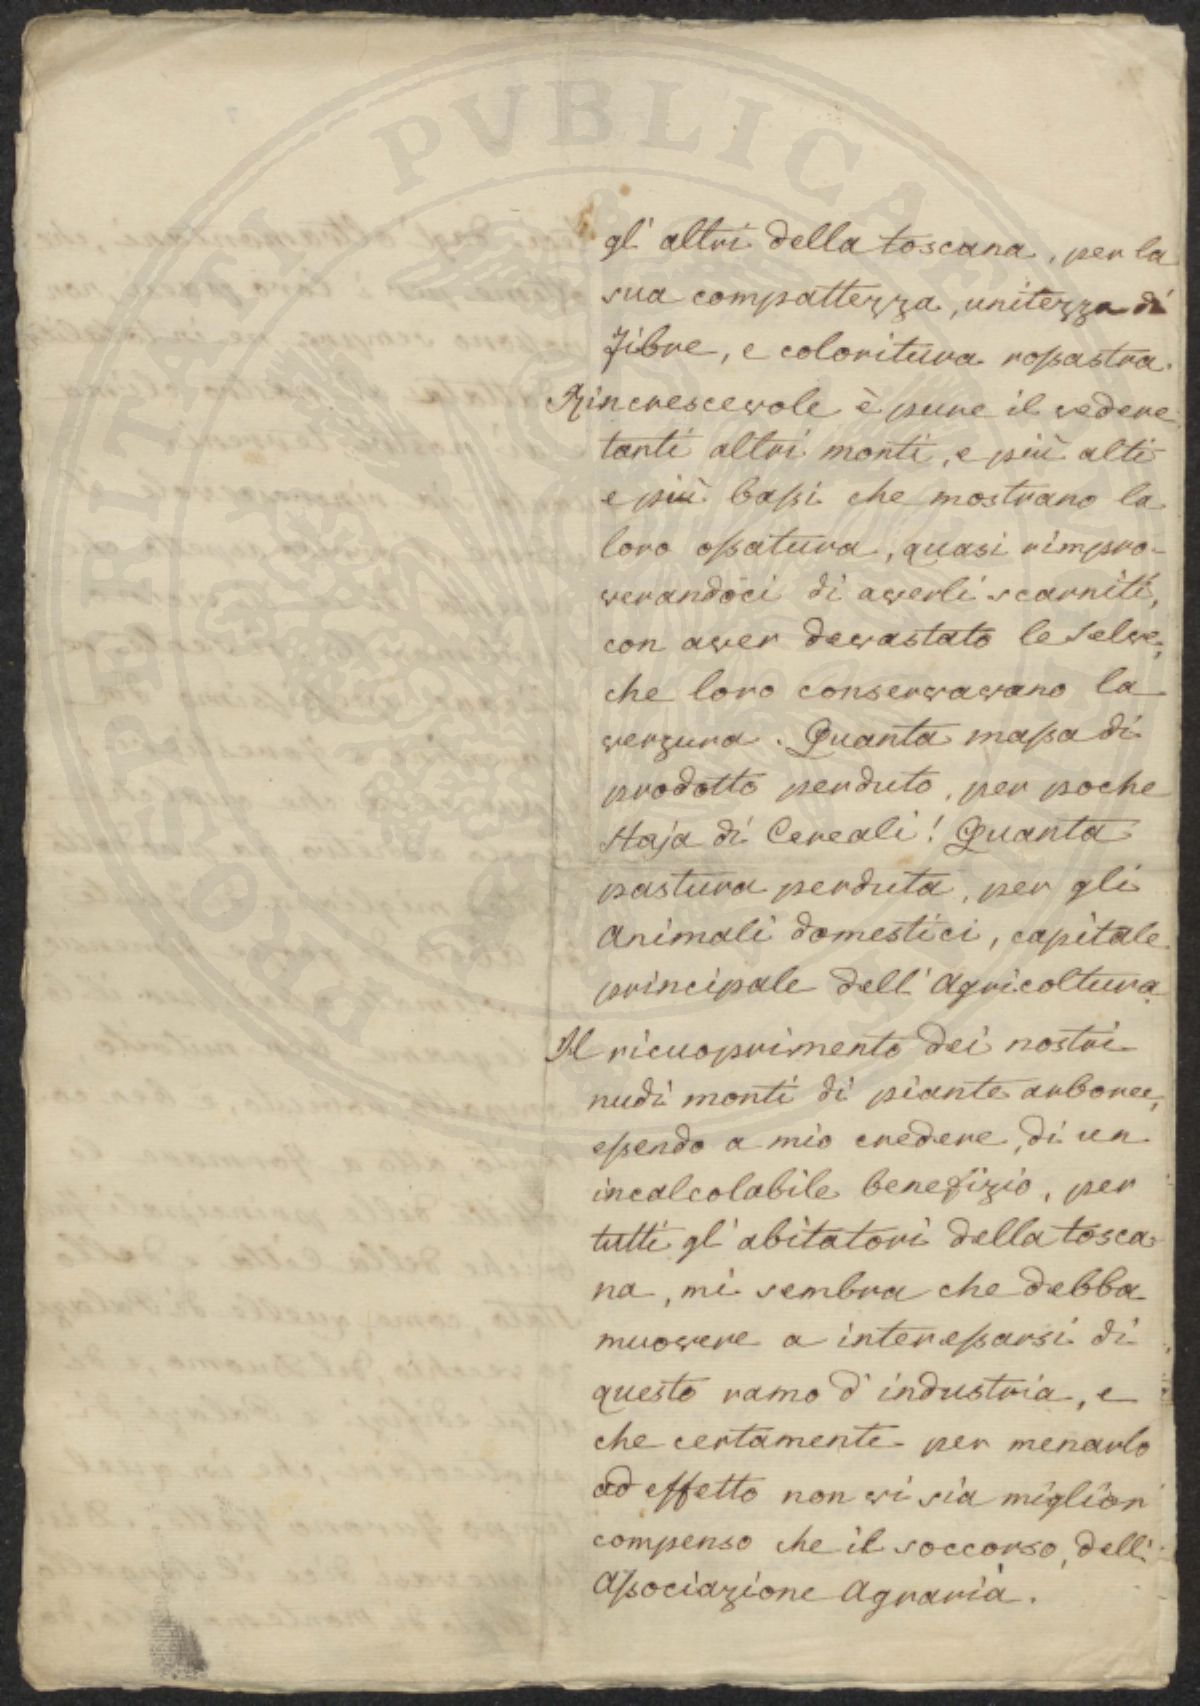 gl' altri della toscana, per la
sua compattezza, unitezza di
fibre, e coloritura rossastra.
Rincrescevole è pure il vedere
tanti altri monti, e più alti
e più bassi che mostrano la
loro ossatura, quasi rimpro-
verandoci di averli scarniti,
con aver devastato le Selve,
che loro conservavano la
verzura. Quanta massa di
prodotto perduto, per poche
Staja di Cereali! Quanta
pastura perduta, per gli
animali domestici, capitale
principale dell' Agricoltura.
Il ricuoprimento dei nostri
nudi monti di piante arboree,
essendo a mio credere, di un
incalcolabile benefizio, per
tutti gl' abitatori della tosca-
na, mi sembra che debba
muovere a interessarsi di
questo ramo d' industria, e
che certamente per menarlo
ad effetto non vi sia miglior
compenso che il soccorso, dell'
Associazione Agraria.